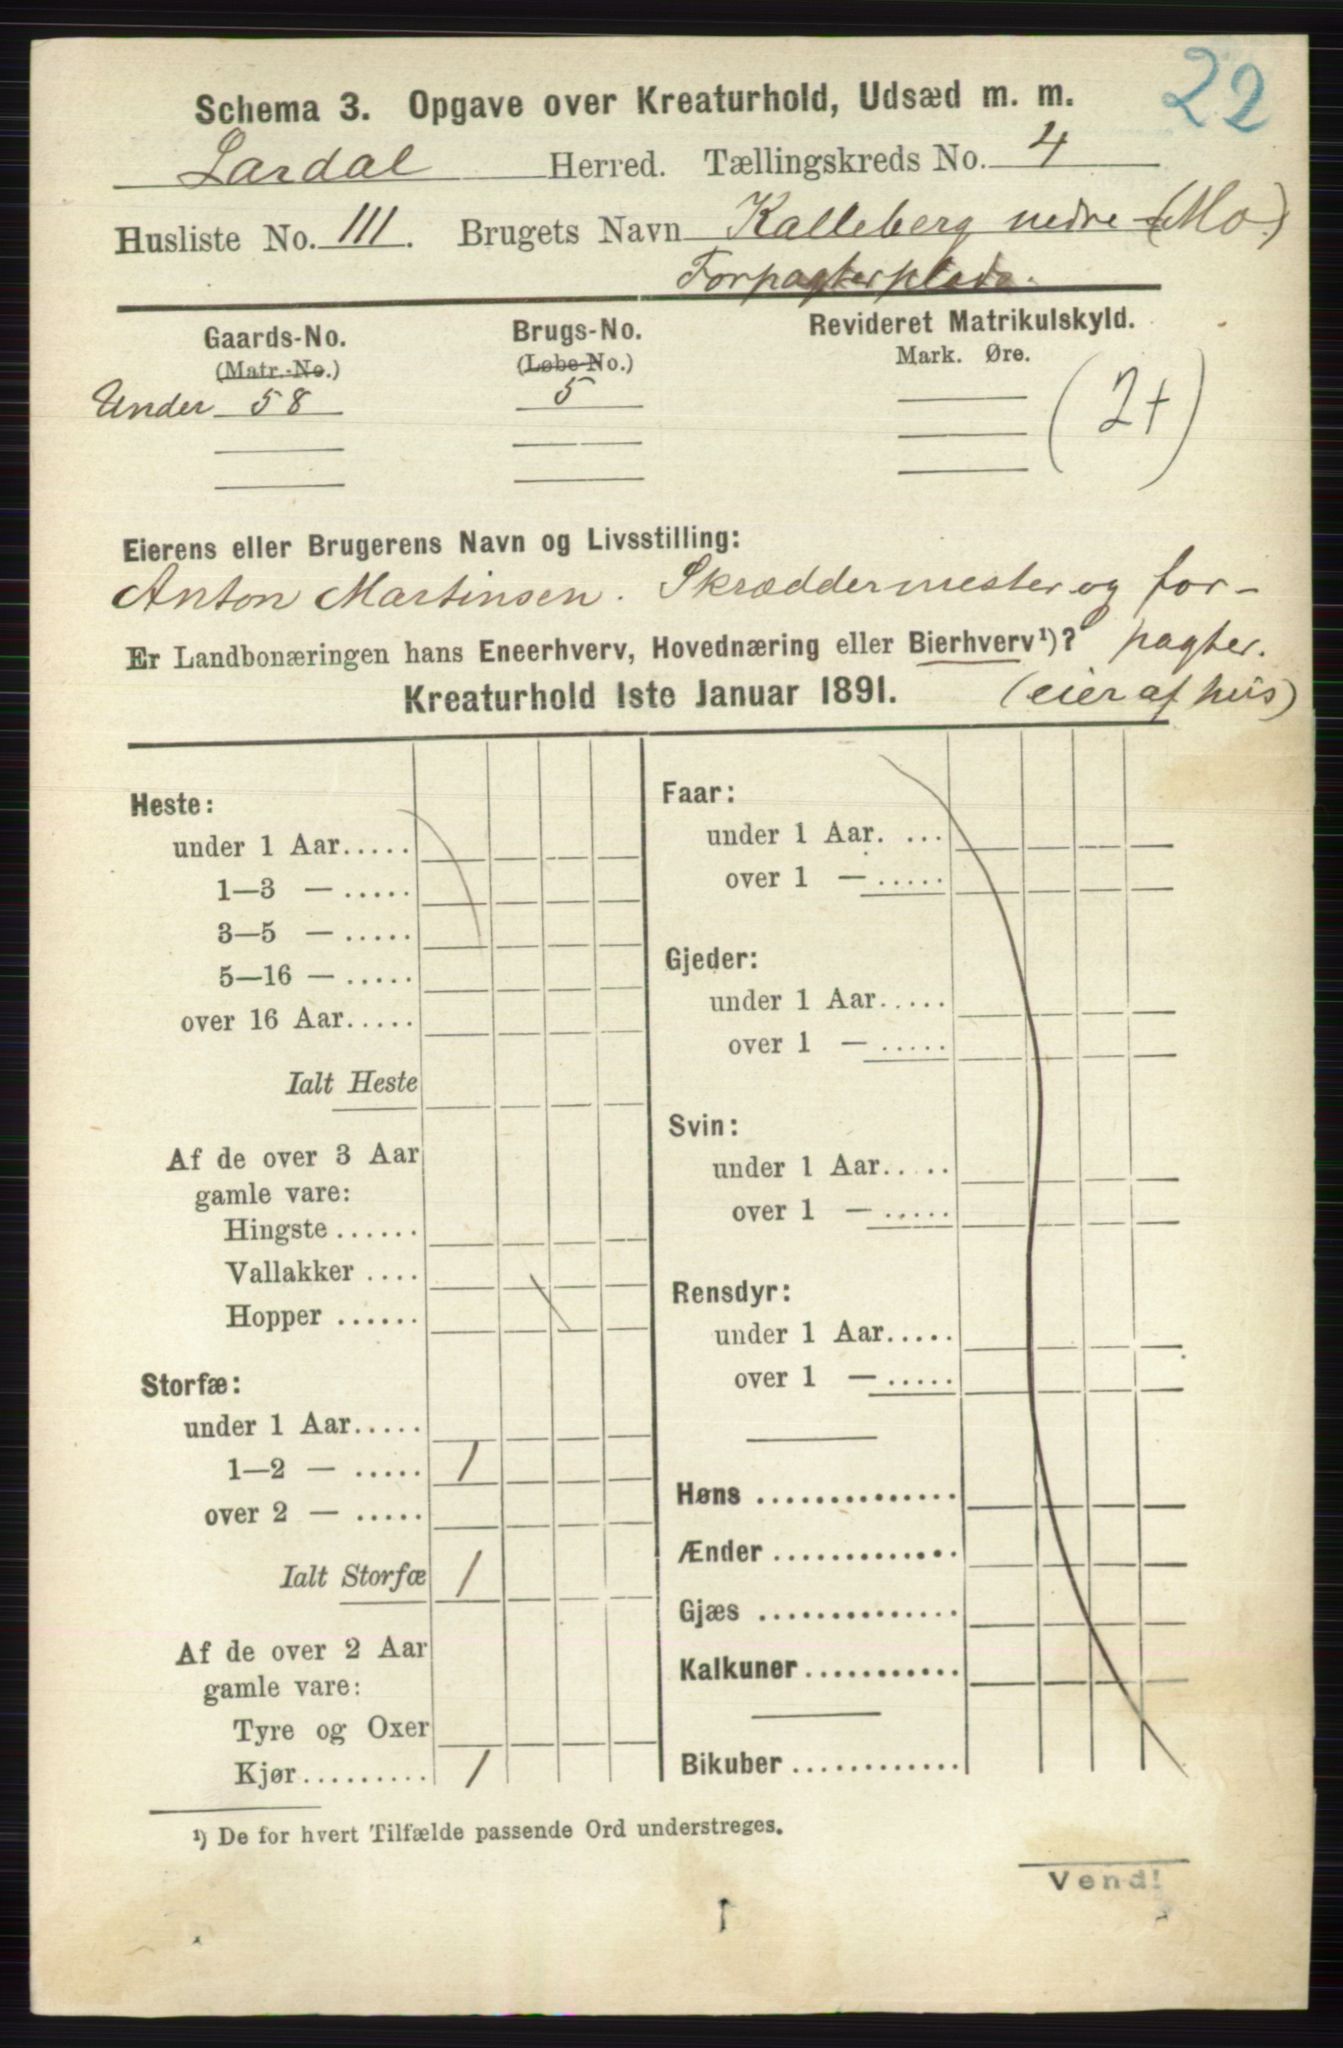 22
Schema 3. Opgave over Kreaturhold, Udsæd m. m.
Lardal Herred. Tællingskreds No. 4
Husliste No. 111. Brugets Navn Kalleberg nedre (Mo.)
Forpagterplads.
Gaards-No. Brugs-No. Revideret Matrikulskyld.
(Matr.-No.) (Løbe-No.) Mark. Øre.
Under 58 5 (2+)
Eierens eller Brugerens Navn og Livsstilling:
Anton Martinsen. Skræddermester og for-
Er Landbonæringen hans Eneerhverv, Hovednæring eller Bierhverv¹)? pagter.
Kreaturhold 1ste Januar 1891. (eier af hus)
Heste:
under 1 Aar.....
1—3 — .....
3—5 — .....
5—16 — .....
over 16 Aar.....
Ialt Heste
Af de over 3 Aar
gamle vare:
Hingste ......
Vallakker ....
Hopper ......
Storfæ:
under 1 Aar.....
1—2 — ..... 1
over 2 — .....
Ialt Storfæ 1
Af de over 2 Aar
gamle vare:
Tyre og Oxer
Kjør......... 1
Faar:
under 1 Aar. ...
over 1 — .....
Gjeder:
under 1 Aar.....
over 1 — .....
Svin:
under 1 Aar.....
over 1 — .....
Rensdyr:
under 1 Aar.....
over 1 — .....
Høns ..............
Ænder .............
Gjæs ..............
Kalkuner...........
Bikuber ............
¹) De for hvert Tilfælde passende Ord understreges.
Vend!